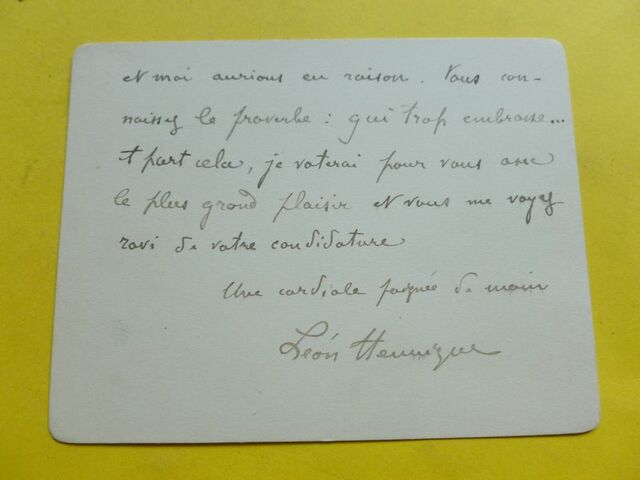 et moi aurions eu raison. Vous con-
naissez le proverbe : qui trop embrasse...
A part cela, je voterai pour vous avec
le plus grand plaisir et vous me voyez
ravi de votre candidature
Une cordiale poignée de main
Léon Hennique